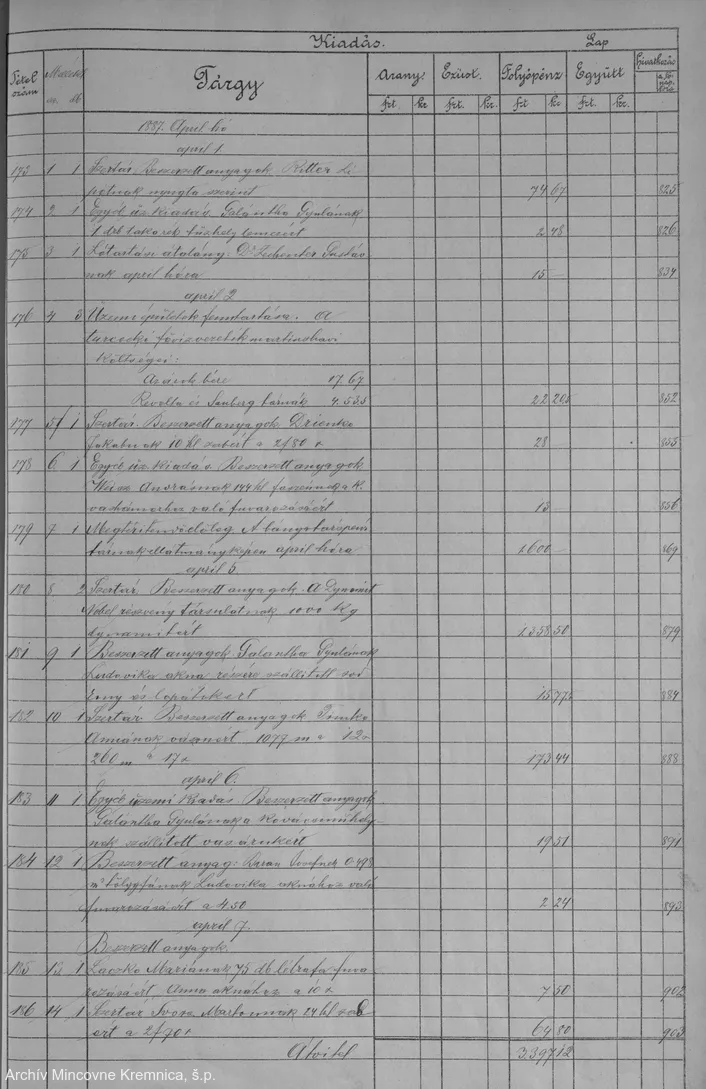 Kiadás. Lap
Tétel szám Melléklet sz. db Tárgy Arany. Ezüst. Folyópénz Együtt Hivatkozás
frt. kr. frt. kr. frt kr frt. kr.
1887. April hó
april 1.
173 1 1 Szertár. Beszerzett anyagok. Ritter Li
pótnak nyugta szerint 74 67 825
174 2 1 Egyéb üz. kiadás. Galántha Gyulának
1 drb takarék tűzhely lemezért 2 48 826
175 3 1 Lótartási átalány: Dr Zechenter Gusztáv
nak april hóra 15 — 834
april 2
176 4 3 Üzemi épületek fenntartása. A
turcseki fővízvezeték martiushavi
költségei:
Ácsok bére 17.67
Revolta és Samberg tárnák 4.535 22 205 852
177 5 1 Szertár. Beszerzett anyagok Drienko
Jakabnak 10 hl zabért a 2f 80 x 28 855
178 6 1 Egyéb üz. kiadás. Beszerzett anyagok
Weisz Andrásnak 144 hl faszénnek a k.
vashámorhoz való fuvarozásáért 13 856
179 7 1 Megtérítendő előleg. A bányatárspénz
tárnak ellátmányképen april hóra 1600 — 869
april 5
180 8 2 Szertár. Beszerzett anyagok. A Dynamit
Nobel részvény társulatnak 1000 Kg
dynamitért 1358 50 879
181 9 1 Beszerzett anyagok. Galántha Gyulának
Ludovika akna részére szállított
és lapátokért 15 77 884
182 10 1 Szertár. Beszerzett anyagok Timko
Annának vászonért 1077 m a 12 x
200 m " 17 x 173 44 888
april 6.
183 11 1 Egyéb üzemi Kiadás. Beszerzett anyagok
Galántha Gyulának a kovácsműhely
nek szállított vasárukért 19 51 891
184 12 1 Beszerzett anyag: 0.498
m³ tölgyfának Ludovika aknához való
fuvarozásáért a 4.50 2 24 893
april 7.
Beszerzett anyagok.
185 13 1 Laczko Mariának 75 db létrafa fuva
rozásáért Anna aknához a 10 x 7 50 902
186 14 1 Szertár Martonnak 24 hl zab
ért a 2f 70 x 64 80 903
Átvitel 3397 12
Archív Mincovne Kremnica, š.p.